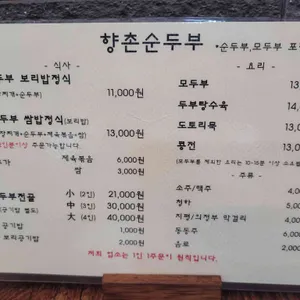 향촌순두부
•순두부,모두부 포
- 식사 -
두부 보리밥정식 11,000원
찌개+순두부)
두부 쌀밥정식(보리밥) 13,000원
장찌개+순두부+제육볶음+쌈)
주문가능합니다.
추가 제육볶음 6,000원
쌈 3,000원
두부전골 小 (2인) 21,000원
(공기밥 별도) 中 (3인) 30,000원
大 (4인) 40,000원
공기밥 1,000원
보리공기밥 2,000원
- 요리 -
모두부 13
두부탕수육 14,
도토리묵 13,0
콩전 13,00
- 주류 -
소주/맥주
청하
지평/의정부 막걸리
동동주
음료 2,000
저희 업소는 1인 1주문이 원칙입니다.